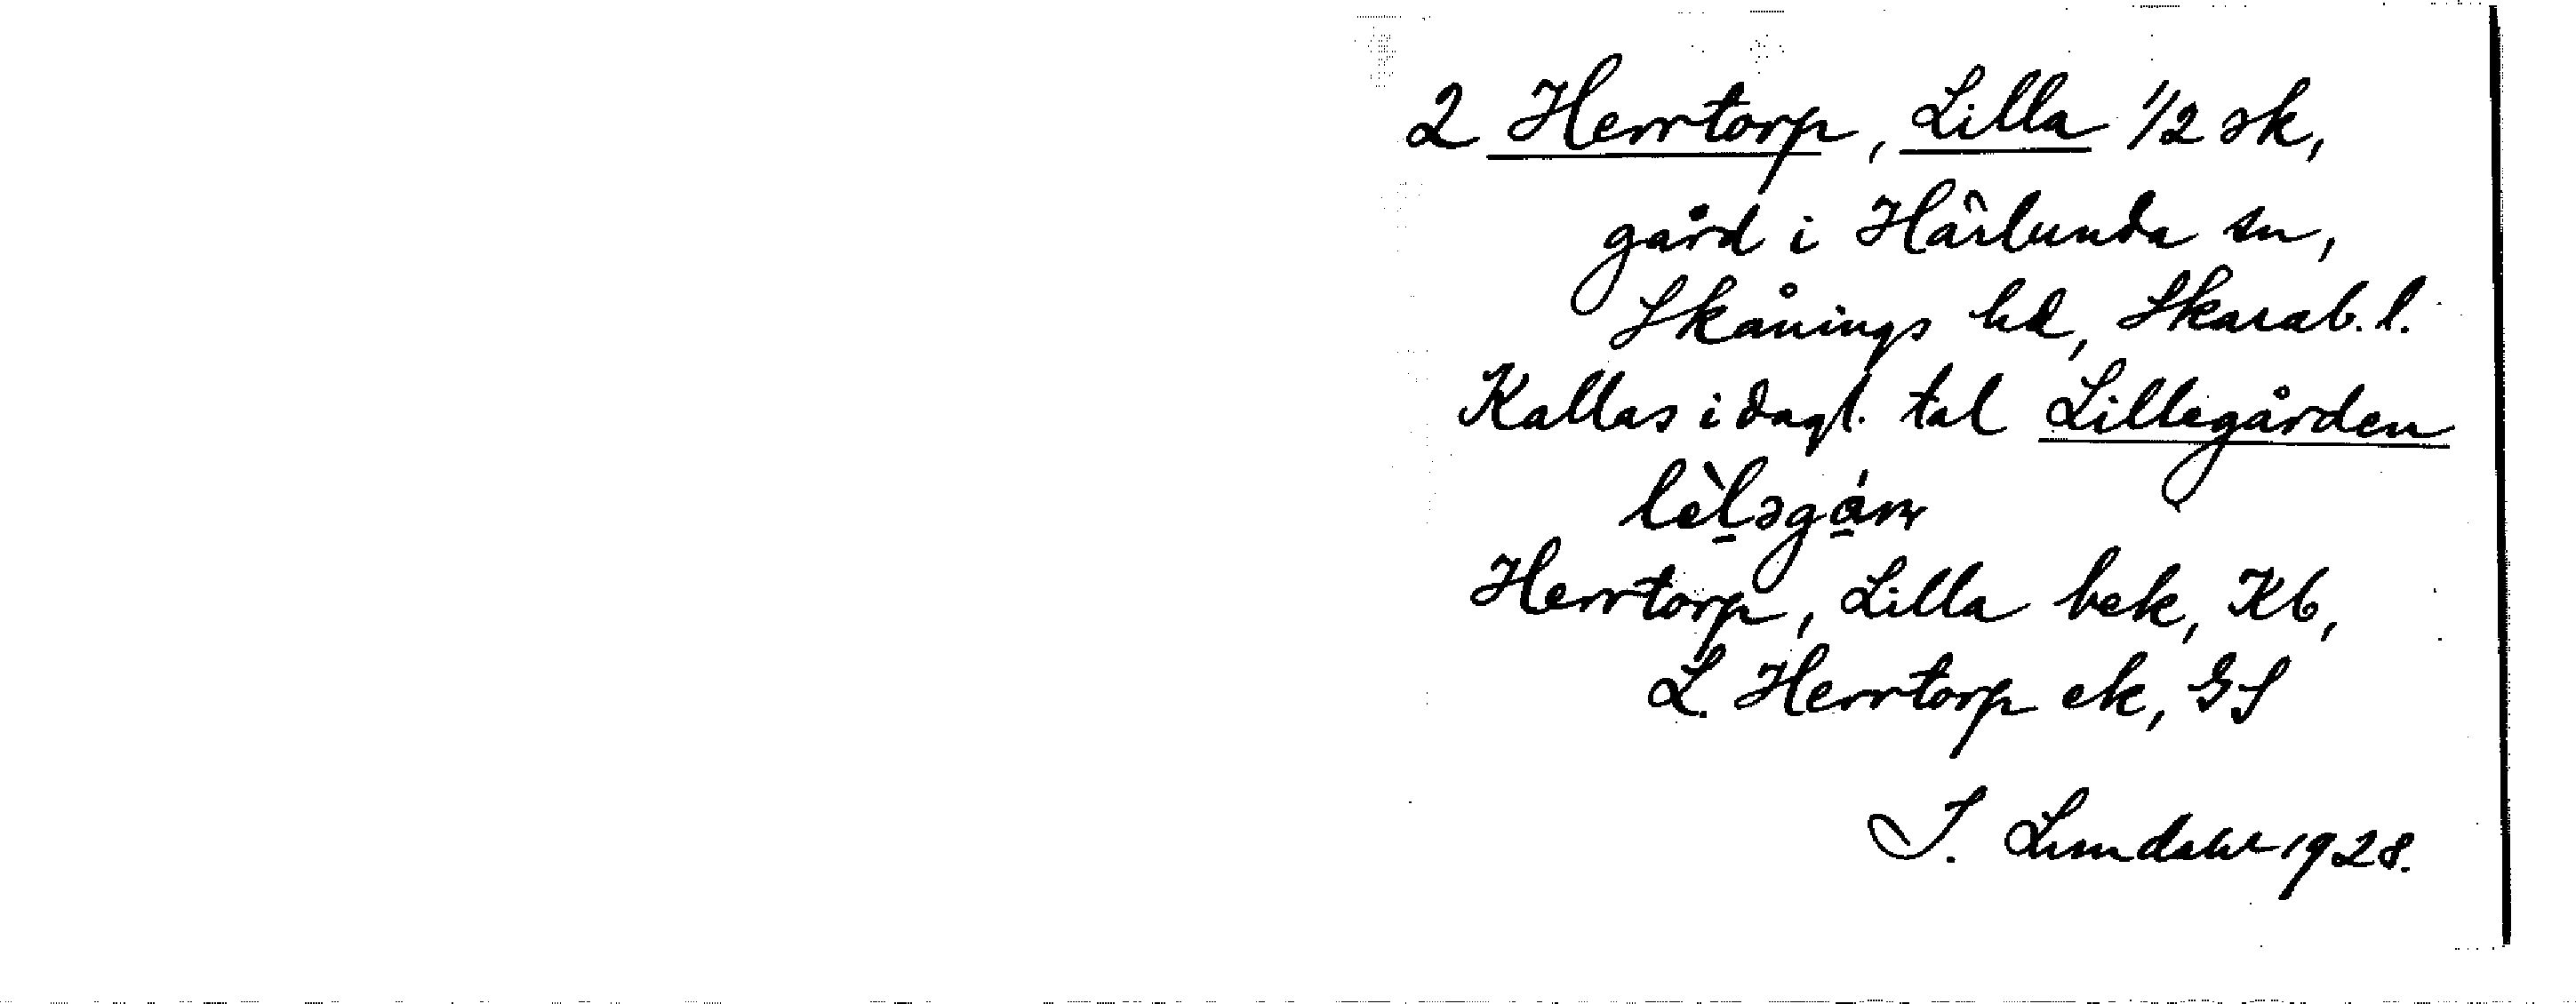 2 Herrtorp, Lilla 1/2 sk,
gård i Härlunda sn,
Skånings hd, Skarab. l.
Kallas i dagl. tal Lillegården
Herrtorp, Lilla bek, Kb,
L. Herrtorp ek, GS
1928.